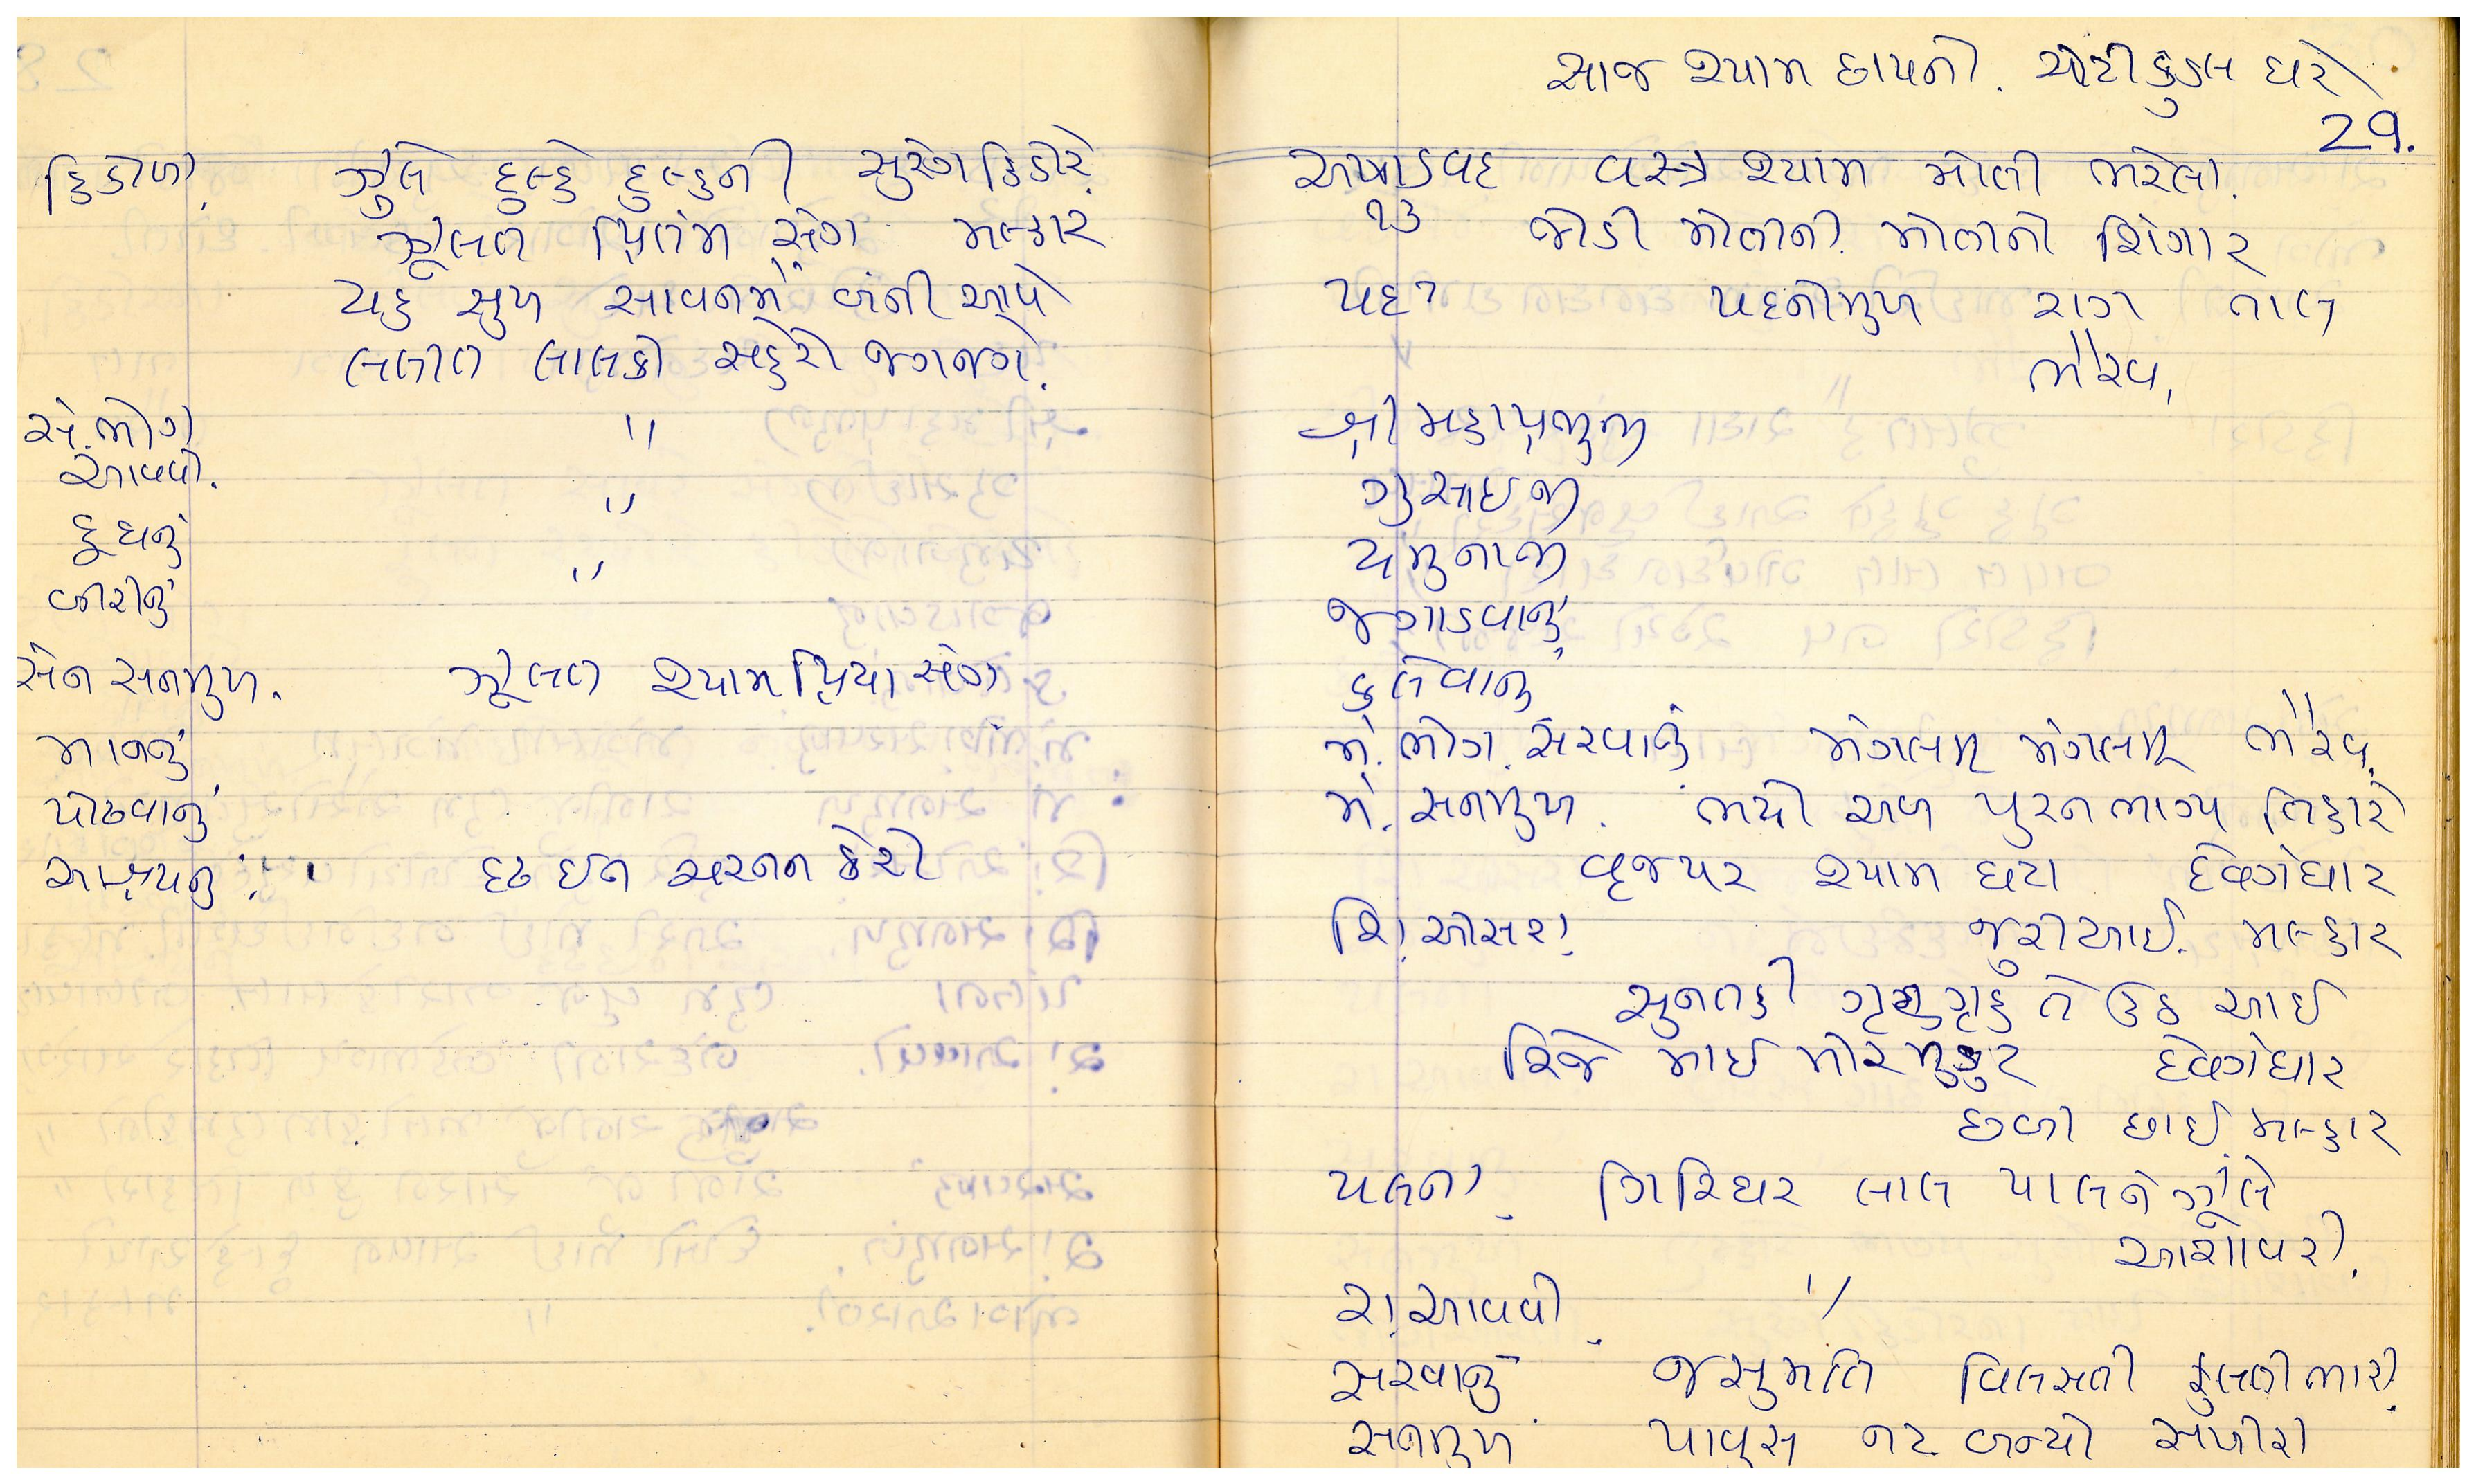 હિંડોળા. ઝુલે દુલ્હે દુલ્હની સુરંગ હિંડોરે.
ઝુલત પ્રિતમ સંગ મલ્હાર
યહ સુખ સાવનમેં બની આવે
લલીત લાલકો સહેરો જગમગે.
સં. ભોગ "
આવવો. "
દૂધનું "
બીરીનું
સેન સનમુખ. ઝૂલત શ્યામ પ્રિયા સંગ
માનનું
પોઢવાનું
આશ્રયનું. દ્રઢ ઈન ચરનન કેરો
આજ શ્યામ છાપનો. ચોટી કુંડલ ધરે
29.
અષાડવદ વસ્ત્ર શ્યામ મોતી ભરેલા.
૧૩ જોડી મોતીની. મોતીનો શિંગાર
પદ ૧ પદનીમુખ રાગ તાલ
ભૈરવ.
શ્રી મહાપ્રભુજી
ગુસાઈજી
યમુનાજી
જગાડવાનું
કલેવાનું
મં. ભોગ. સરવાનું મંગલમ મંગલમ ભૈરવ.
મં. સનમુખ. ભયો અબ પુરન ભાગ્ય તિહારે
વૃજપર શ્યામ ઘટા દેવગંધાર
શિં. ઓસરા. જુરીઆઈ. મલ્હાર
સુનતહી ગૃહ તે ઉઠ આઈ
માઈ મોર મુકુટ દેવગંધાર
છબી છાઈ. મલ્હાર
પલના. ગિરિધર લાલ પાલને ઝુલે
આશાવરી.
રા. આવવો. "
સરવાનું જસુમતિ વિલસતી ફુલનીભારી.
સનમુખ પાવૃસ નટ બન્યો